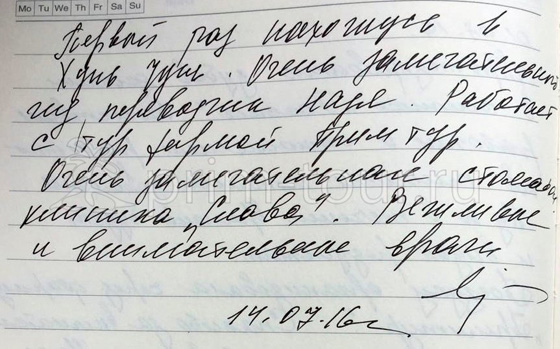 Mo Tu We Th Fr Sa Su
Первый раз нахожусь в
Хунь Чунь. Очень замечательный
гид переводчик Надя. Работает
с тур фирмой Прим тур.
Очень замечательная стомат
клиника "Слава". Вежливые
и внимательные врачи
14.07.16г
prim-tour.ru